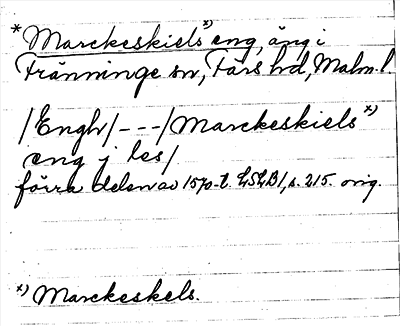 * Marckeskiels x) eng, äng i
Tränninge sn, Färs hd, Malm. l.
/Engh/---/Marckeskiels x)
eng j les/
förra delen av 1570-t. LSLB1, s. 215. orig.
x) Marckeskels.